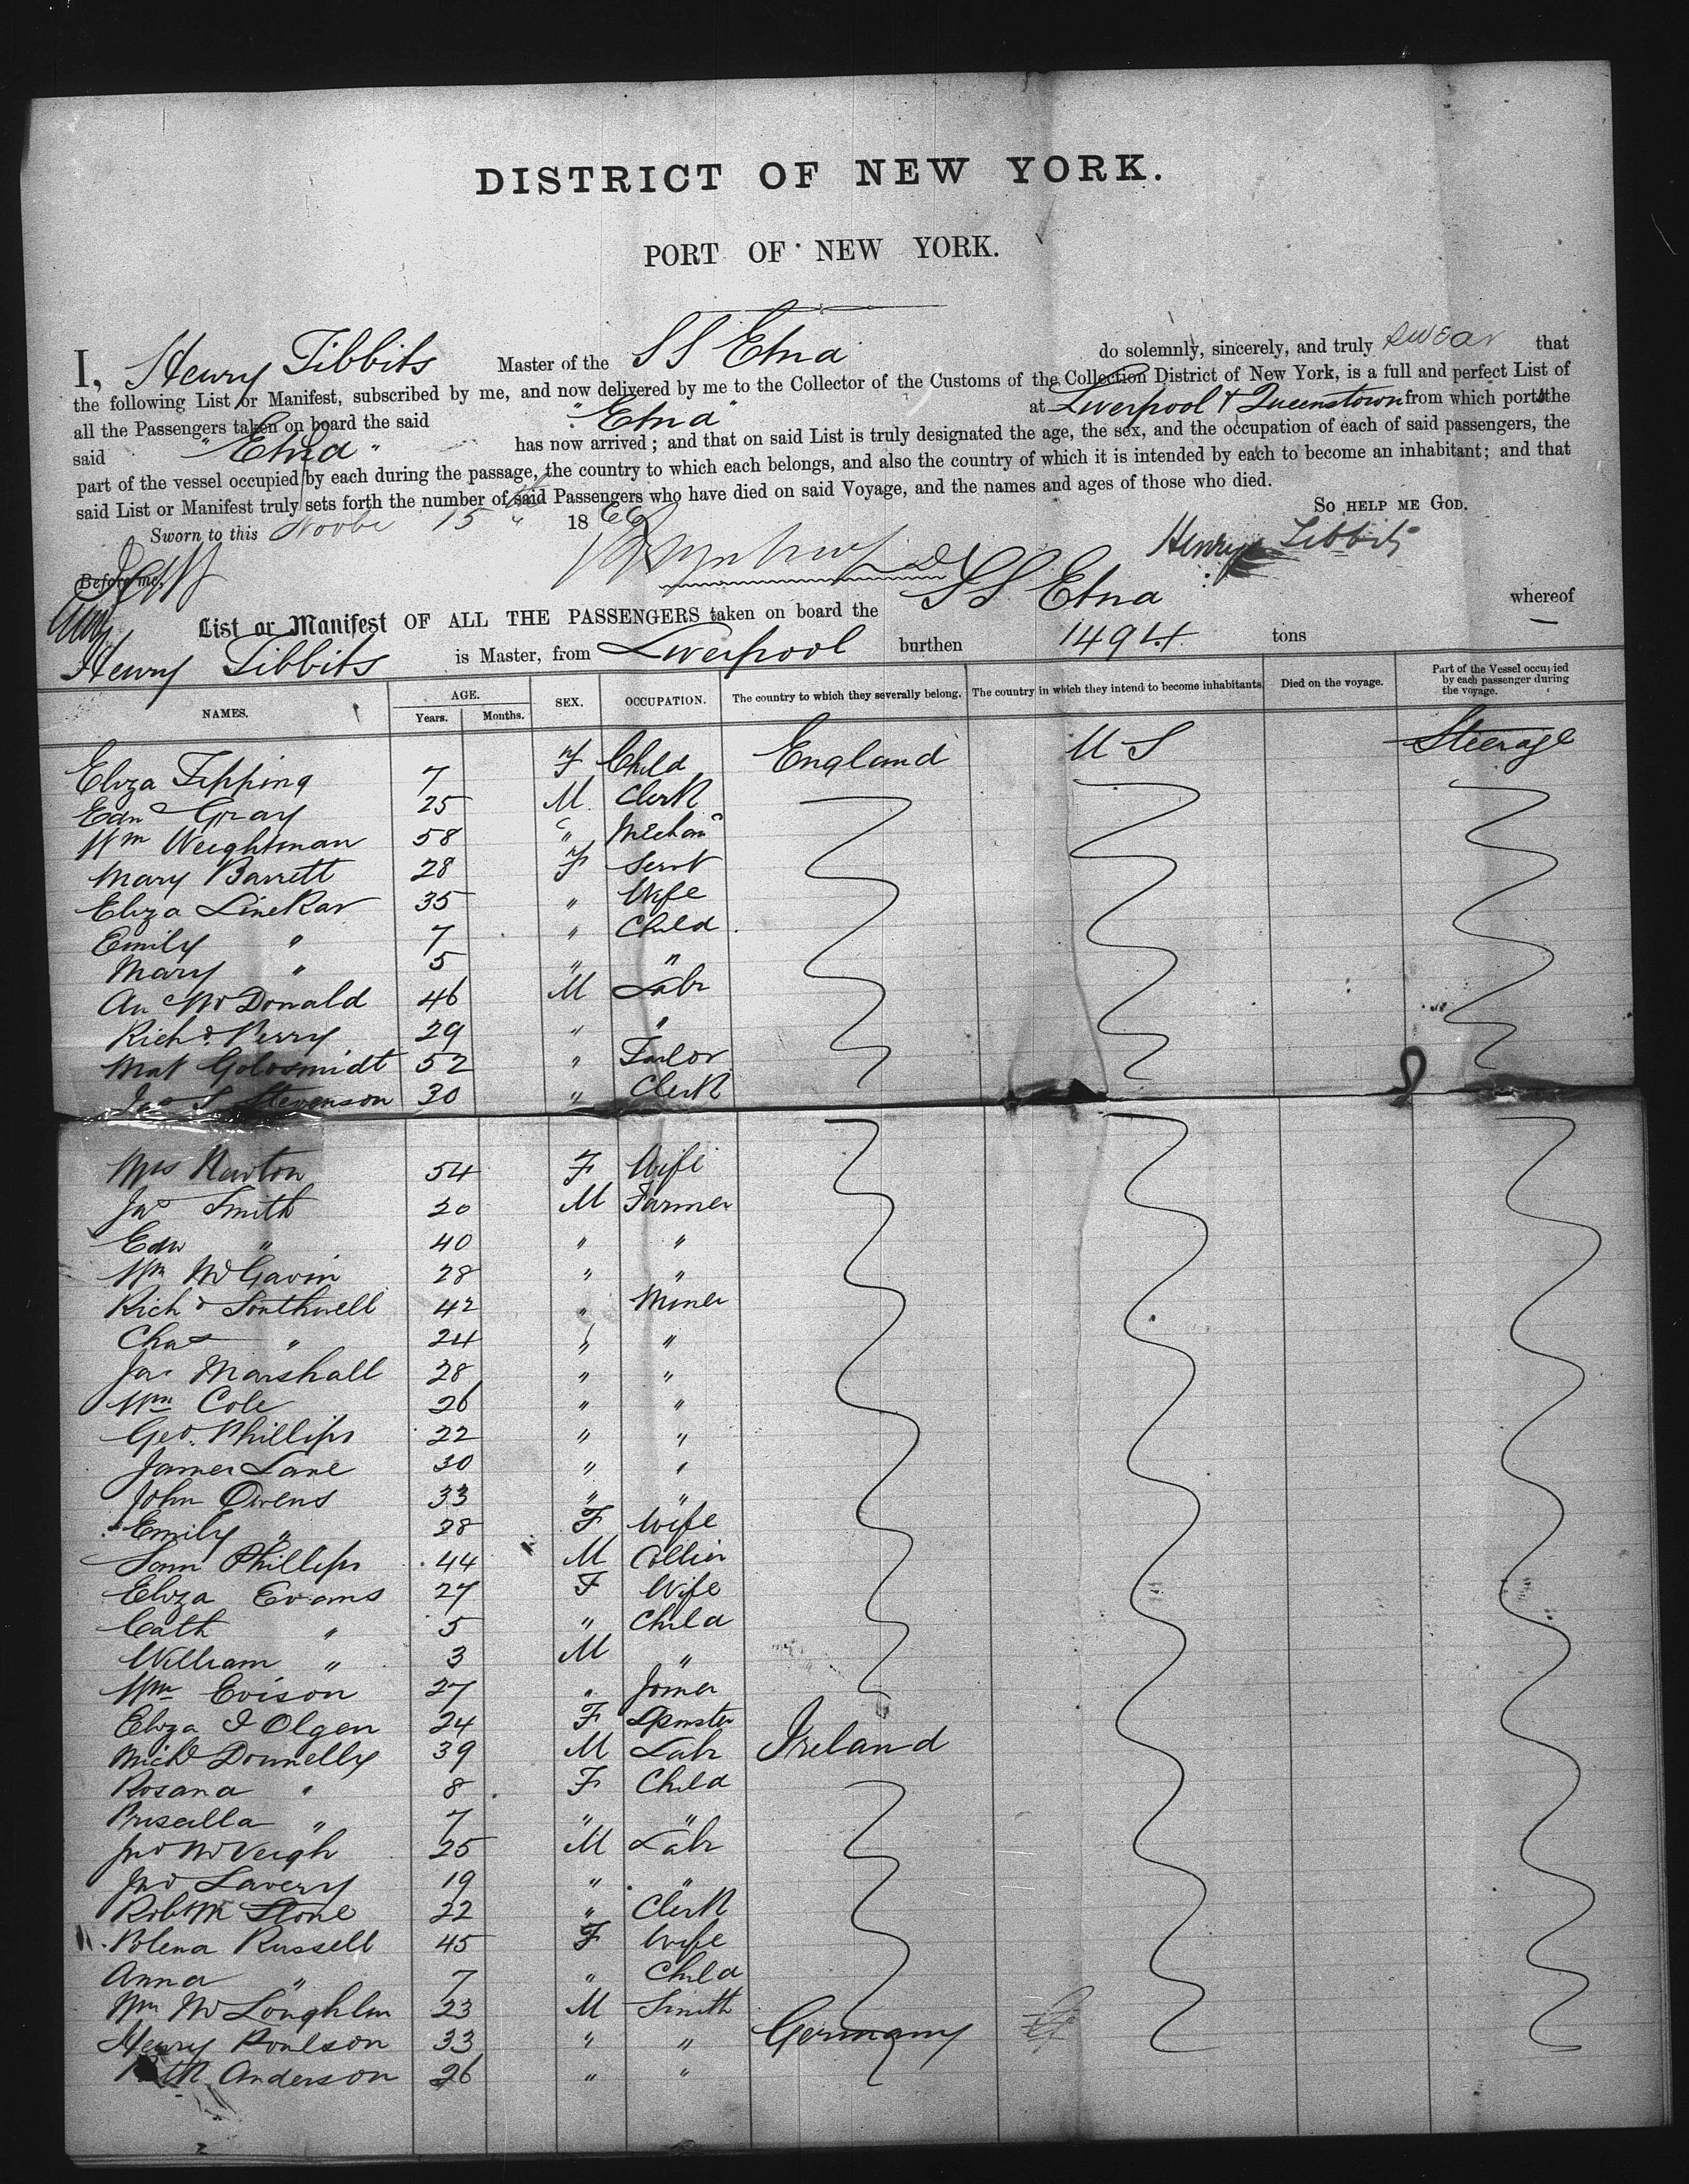 DISTRICT OF NEW YORK.
PORT OF NEW YORK.
I, Henry Tibbits Master of the SS Etna do solemnly, sincerely, and truly swear that
the following List or Manifest, subscribed by me, and now delivered by me to the Collector of the Customs of the Collection District of New York, is a full and perfect List of
all the Passengers taken on board the said "Etna" at Liverpool & Queenstown from which ports the
said "Etna" has now arrived; and that on said List is truly designated the age, the sex, and the occupation of each of said passengers, the
part of the vessel occupied by each during the passage, the country to which each belongs, and also the country of which it is intended by each to become an inhabitant; and that
said List or Manifest truly sets forth the number of said Passengers who have died on said Voyage, and the names and ages of those who died.
SO HELP ME GOD.
Sworn to this Novbr 15 1866
Henry Tibbits
Before me,
List or Manifest OF ALL THE PASSENGERS taken on board the SS Etna whereof
Henry Tibbits is Master, from Liverpool burthen 1494 tons
NAMES. AGE. Years. Months. SEX. OCCUPATION. The country to which they severally belong. The country in which they intend to become inhabitants. Died on the voyage. Part of the Vessel occupied by each passenger during the voyage.
Eliza Tipping 7 F Child England U S Steerage
Edwd Gray 25 M Clerk
Wm Weightman 58 " Mechanc
Mary Barrett 28 F Servt
Eliza Linekar 35 " Wife
Emily " 7 " Child
Mary " 5 " "
An McDonald 46 M Labr
Richd Perry 29 " "
Mat Goldsmidt 52 " Tailor
Jas S Stevenson 30 " Clerk
Mrs Newton 54 F Wife
Jas Smith 20 M Farmer
Edw " 40 " "
Wm McGavin 28 " "
Richd Southwell 42 " Miner
Chas " 24 " "
Jas Marshall 28 " "
Wm Cole 26 " "
Geo. Phillips 22 " "
James Lane 30 " "
John Owens 33 " "
Emily " 28 F Wife
Saml Phillips 44 M Collier
Eliza Evans 27 F Wife
Cath " 5 " Child
William " 3 M "
Wm Evison 27 " Joiner
Eliza I Olgen 24 F Spinster
Michl Donnelly 39 M Labr Ireland
Rosana " 8 F Child
Priscilla " 7 " "
Jno McVeigh 25 M Labr
Jno Lavery 19 " "
Robt M Stone 22 " Clerk
Polena Russell 45 F Wife
Anna " 7 " Child
Wm McLoughlin 23 M Smith
Henry Poulson 33 " " Germany
Anderson 26 " "